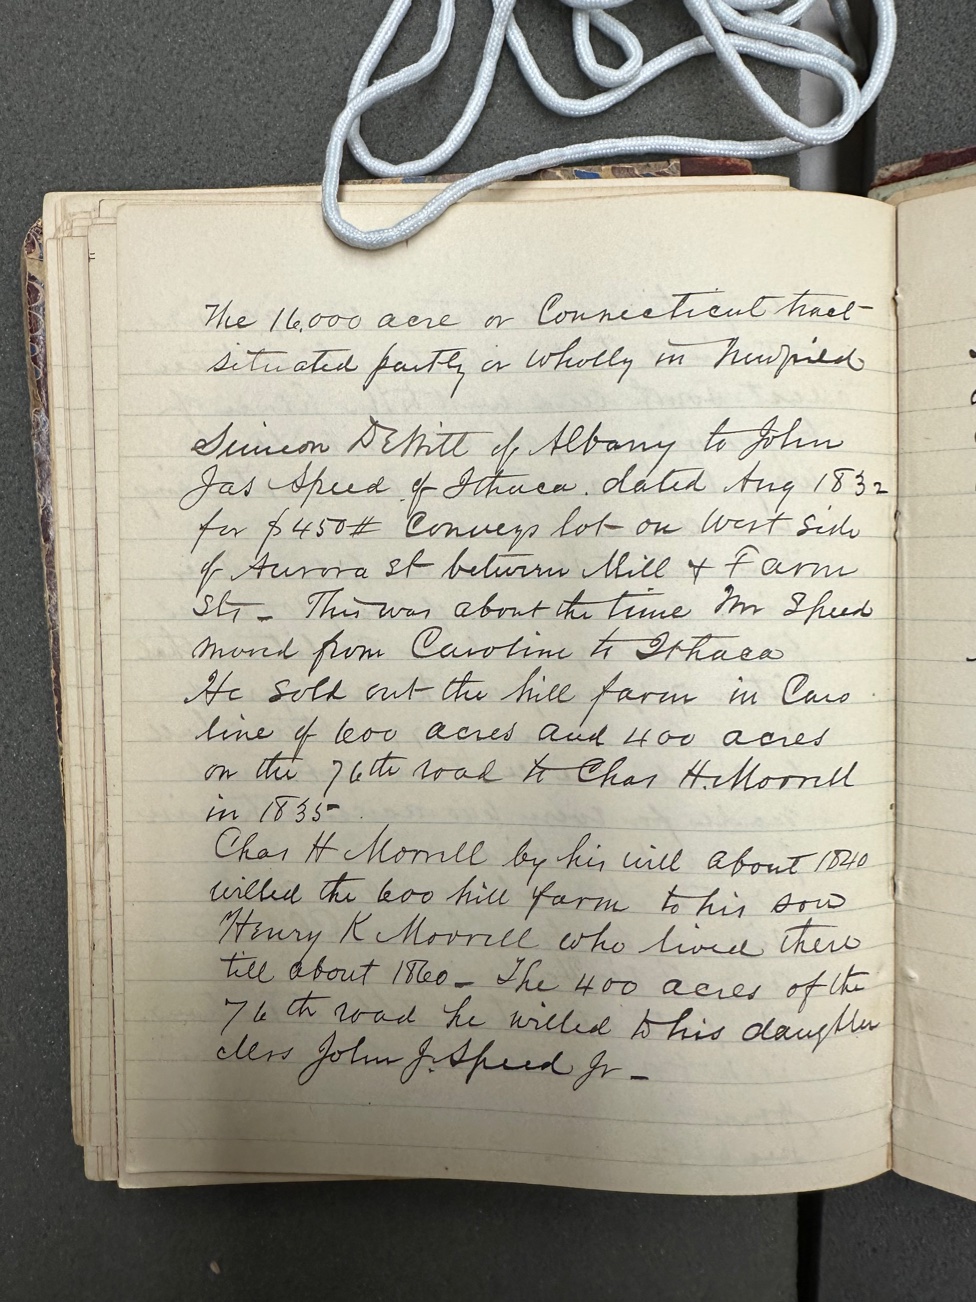 The 16,000 acre or Connecticut tract
situated partly or wholly in Newfield
Simeon DeWitt of Albany to John
Jas Speed of Ithaca. dated Aug 1832
for $450# Conveys lot on West Side
of Aurora st between Mill & Farm
Sts - This was about the time Mr Speed
moved from Caroline to Ithaca
He sold out the hill farm in Caro
line of 600 acres and 400 acres
on the 76th road to Chas H. Morrell
in 1835
Chas H Morrell by his will about 1840
willed the 600 hill farm to his son
Henry K Morrell who lived there
till about 1860 - The 400 acres of the
76th road he willed to his daughter
Mrs John J. Speed Jr -